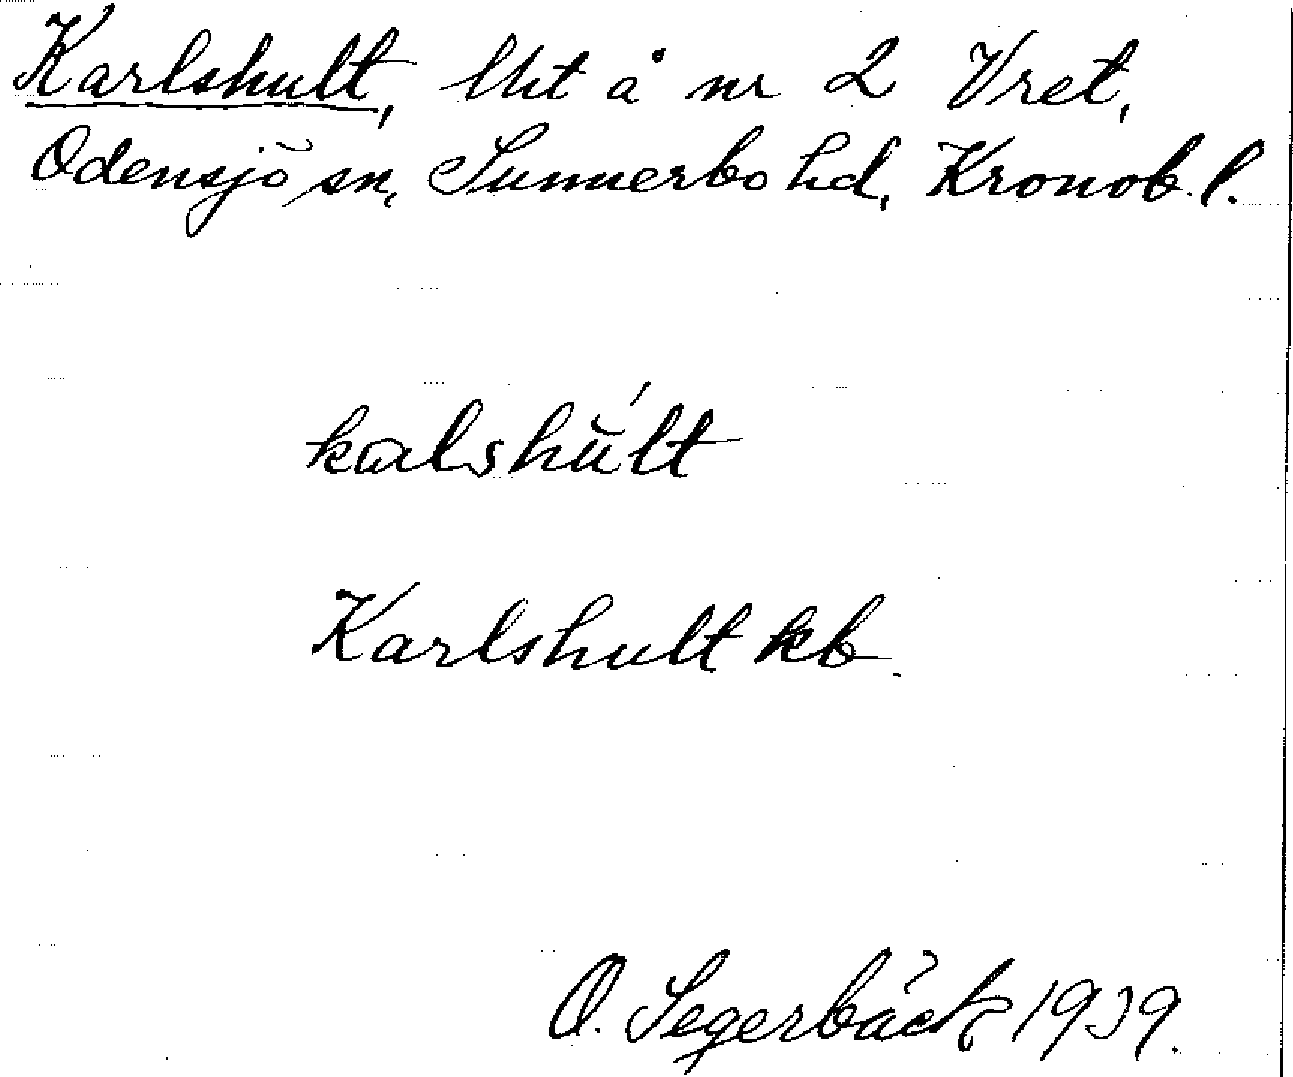 Karlshult, lht å nr 2 Vret,
Odensjö sn, Sunnerbo hd, Kronob. l.
kalshu̇́lt
Karlshult kb.
O. Segerbäck 1939.